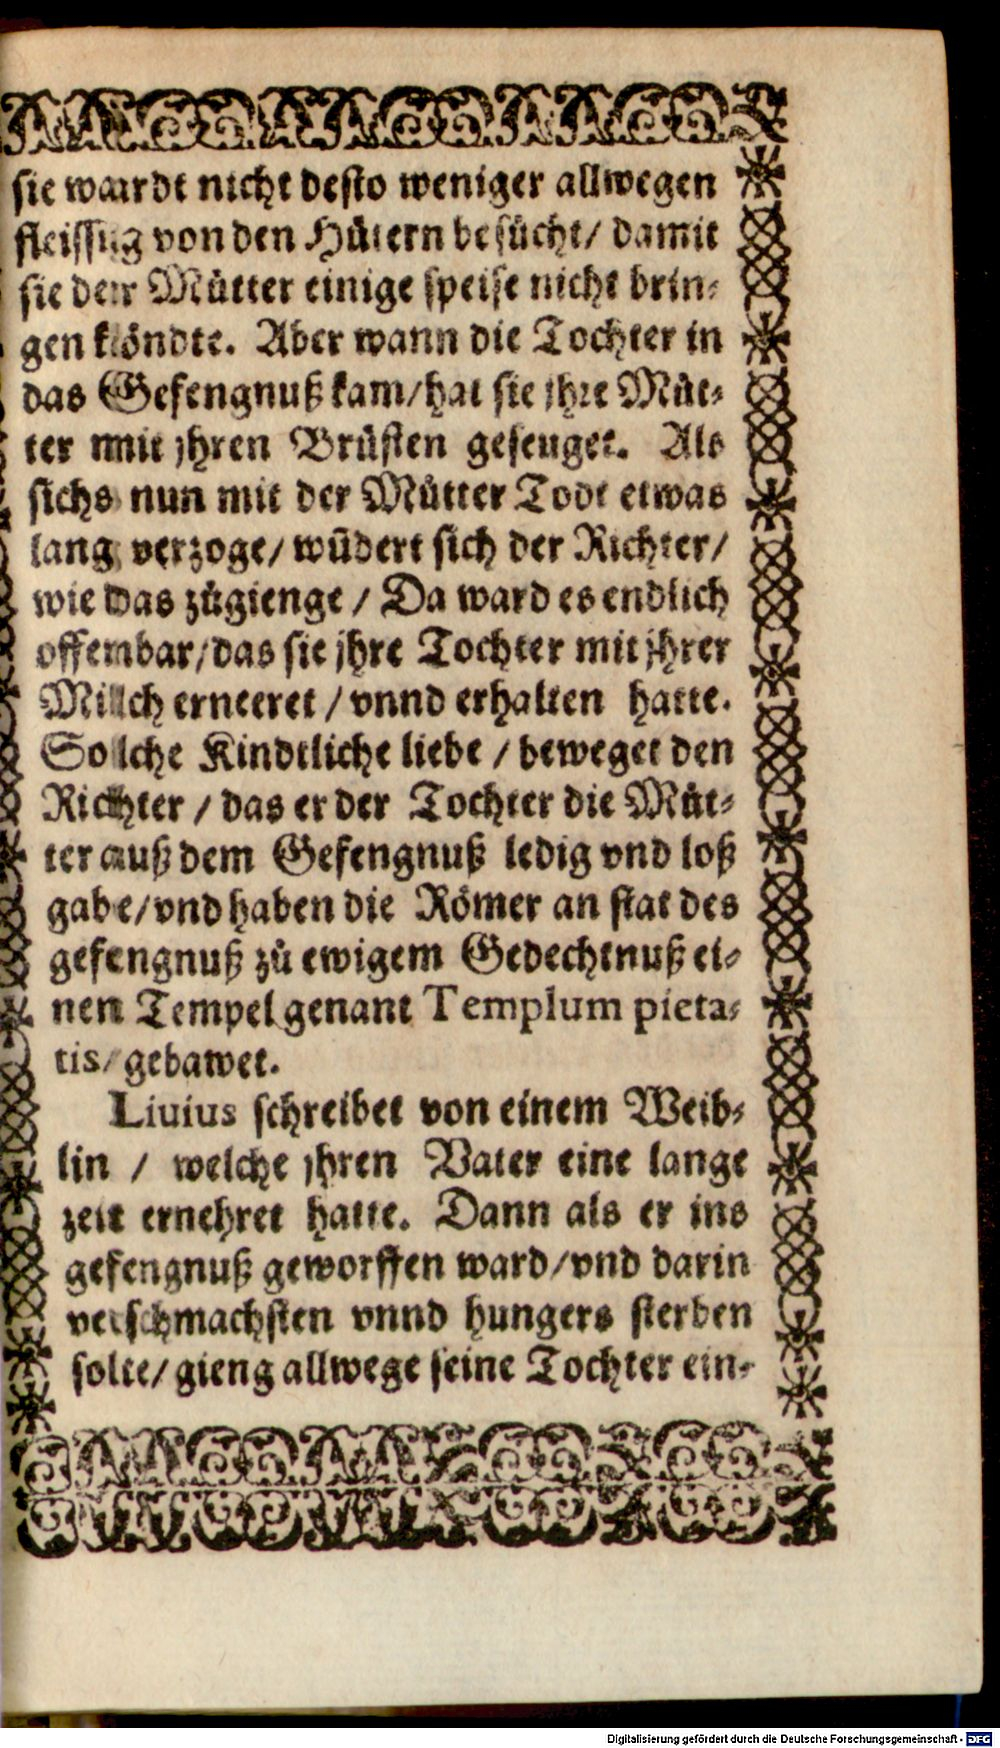 sie wardt nicht desto weniger allwegen
fleissig von den Hütern besücht/ damit
sie der Mütter einige speise nicht brin⸗
gen köndte. Aber wann die Tochter in
das Gefengnuß kam/hat sie jhre Müt⸗
ter mit jhren Brüsten geseuget. Als
sichs nun mit der Mütter Todt etwas
lang verzoge/ wũdert sich der Richter/
wie das zügienge / Da ward es endlich
offembar/das sie jhre Tochter mit jhrer
Milch erneeret / vnnd erhalten hatte.
Solche Kindtliche liebe / beweget den
Richter / das er der Tochter die Müt⸗
ter auß dem Gefengnuß ledig vnd loß
gabe/vnd haben die Römer an stat des
gefengnuß zü ewigem Gedechtnuß ei⸗
nen Tempel genant Templum pieta⸗
tis/ gebawet.
Liuius schreibet von einem Weib⸗
lin / welche jhren Vater eine lange
zeit ernehret hatte. Dann als er ins
gefengnuß geworffen ward/vnd darin
verschmachsten vnnd hungers sterben
solte/ gieng allwege seine Tochter ein⸗
Digitalisierung gefördert durch die Deutsche Forschungsgemeinschaft - DFG